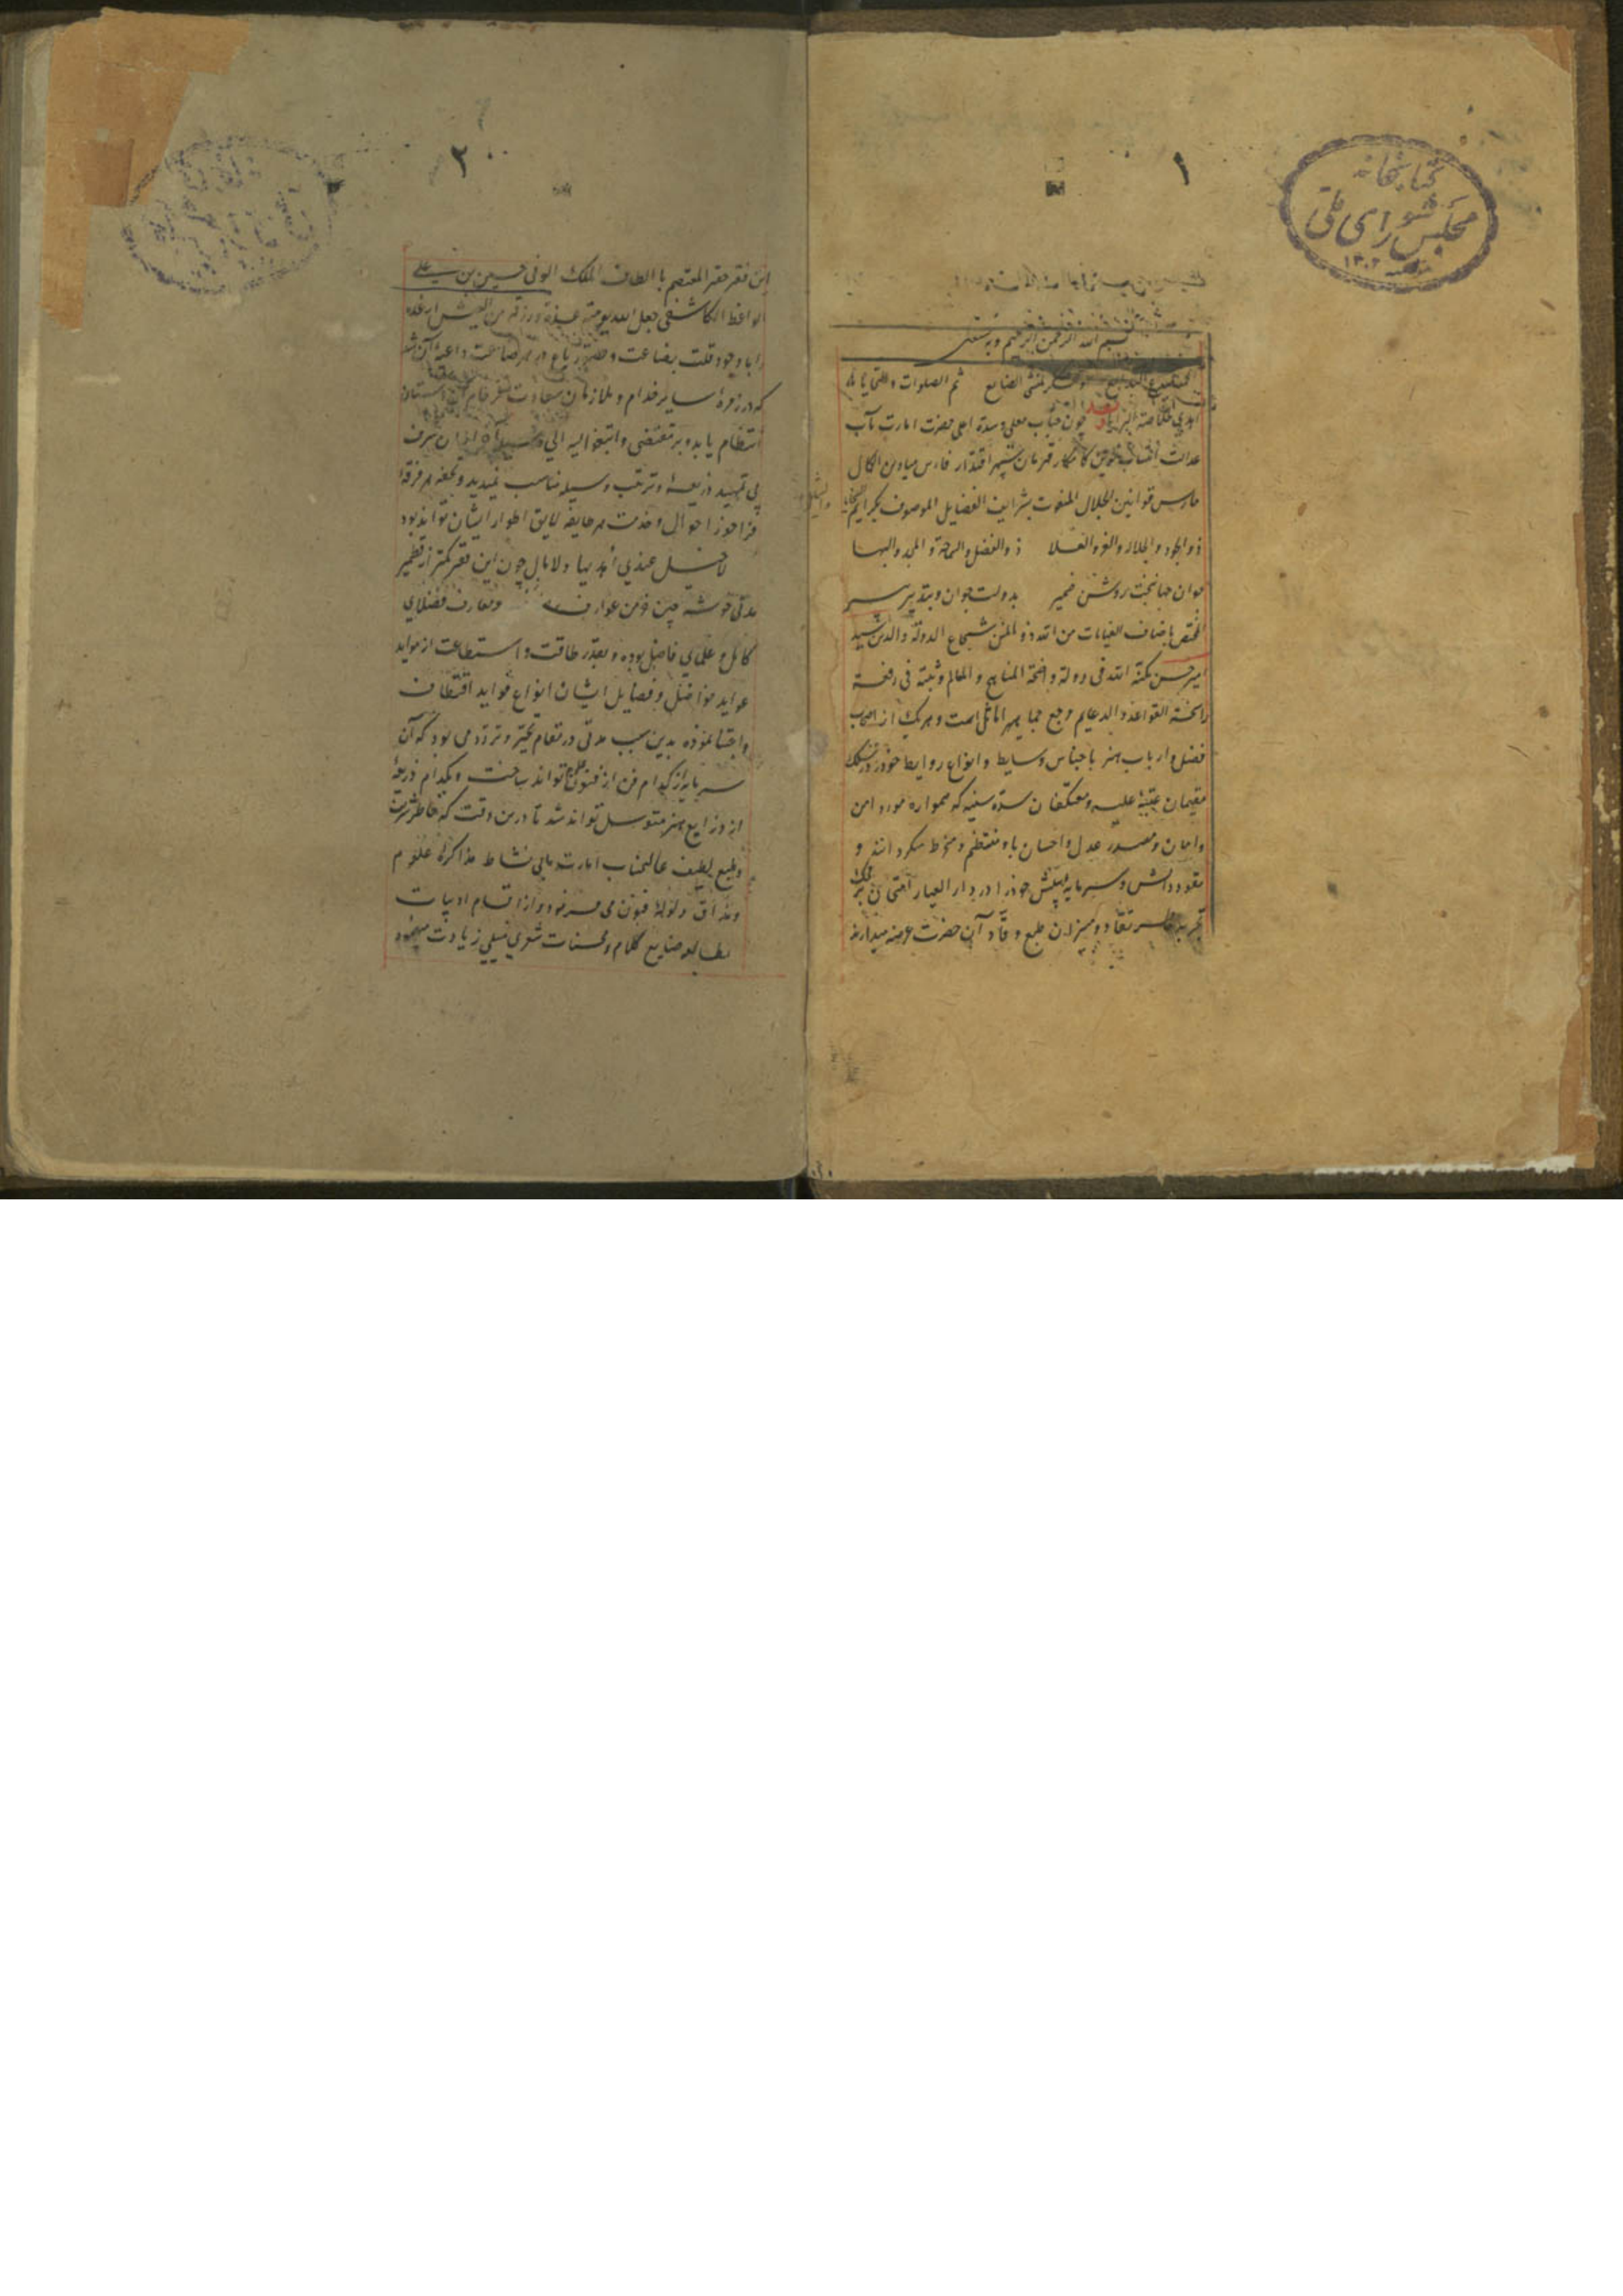 ۱
کتابخانه
مجلس شورای ملی
۱۳۰۲
بسم الله الرحمن الرحیم وبه نستعین
ثم الصلوات والتحیات
چون جناب معلی وسده اعلی حضرت امارت مآب
عدالت کامکار قهرمان سپهر اقتدار فارس میادین الکمال
حارس قوانین الجلال المنعوت بشرایف الفضایل الموصوف
ذو الجود والجلالة والعز والعلا ذو الفضل والسماحة والمجد والبها
جوان جوانبخت روشن ضمیر بدولت جوان وبتدبیر پیر
المختص باصناف العنایات من الله ذو المنن شجاع الدولة والدین سید
امیر حسن مکنه الله فی دولة واضحة المناهج والمعالم وثبته فی رفعة
راسخة القواعد والدعایم مرجع جماهیر اماثل است وهریک از اصحاب
فضل وارباب هنر باجناس وسایط وانواع روابط خودرا در سلک
مقیمان عتبه علیه ومعتکفان سده سنیه که همواره مورد امن
وامان ومصدر عدل واحسان باد منتظم ومنخرط میکردانند و
نقود دانش وسرمایه بینش خودرا در دار العیار امتحان بر محک
تجربه خاطر نقاد ومیزان طبع وقاد آن حضرت عرضه میدارند
۲
این فقیر حقیر المعتصم با الطاف الملک الوفی حسین بن علی
الواعظ الکاشفی جعل الله یومه
را با وجود قلت بضاعت وقصور باع در هر صناعت داعیه آن شد
که در زمره سایر خدام وملازمان سعادت فرجام آن آستان
انتظام یابد وبر مقتضی وابتغوا الیه الوسیلة این شرف
بی تمهید ذریعه وترتیب وسیله مناسب نمیدید وتحفه هر فرقه
فراخور احوال وخدمت هر طایفه لایق اطوار ایشان تواند بود
لا خیل عندی أهدیها ولا مال چون این فقیر کمتر از قطمیر
مدتی خوشه چین خرمن عوارف ومعارف فضلای
کامل وعلمای فاضل بوده وبقدر طاقت واستطاعت از موابد
عواید فواضل وفضایل ایشان انواع فواید اقتطاف
واجتنا نموده بدین سبب مدتی در مقام تحیر وتردد می بود که آن
سرمایه از کدام فن از فنون تواند ساخت وبکدام ذریعه
از ذرایع هنر متوسل تواند شد تا درین وقت که خاطر شریف
وطبع لطیف عالیجناب امارت مآبی نشاط مذاکره علوم
ومذاق فنون می فرمود واز اقسام ادبیات
بمطالعه صنایع کلام ومحسنات شعری میلی زیادت مینمود